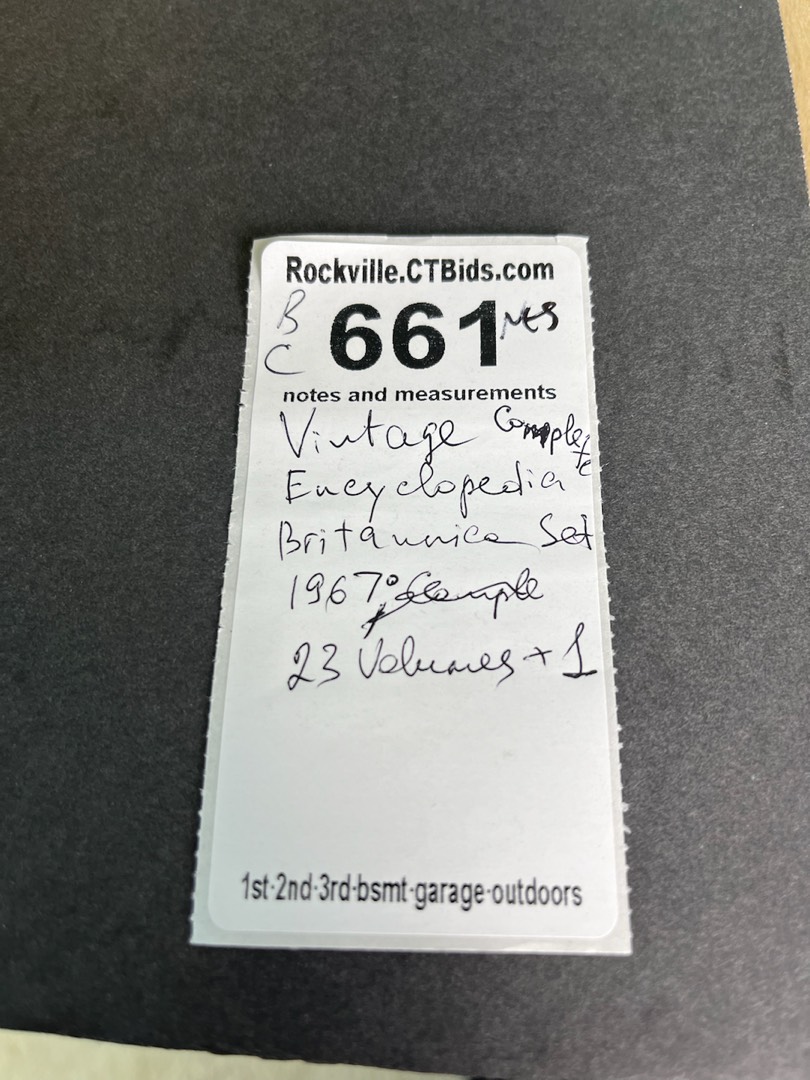 Rockville.CTBids.com
B 661
C
notes and measurements
Vintage Complete
Encyclopedia
Britannica Set
1967
23 Volumes + 1
1st·2nd·3rd·bsmt·garage·outdoors